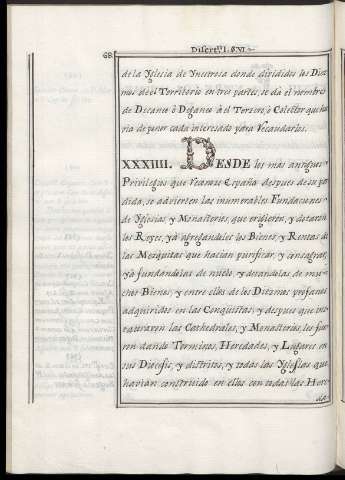 68
Disert.ⁿ I. §. VI.
de la Yglesia de Ynestrosa donde divididos los Diez
mos de el Territorio en tres partes, se dá el nombre
de Decano ò Degano à el Tercero, ò Colector que ha
ria de poner cada interesado para Recaudarlos.
XXXIIII. DESDE los mas antiguos
Privilegios que vèamos España despues de su per
dida, se advierten las inumerables Fundaciones
de Yglesias y Monasterios, que erigieron, y dotaron
los Reyes, yà agregandoles los Bienes, y Rentas de
las Mezquitas que hacian purificar, y consagrar,
yà fundandolas de nuebo, y dotandolas de mu
chos Bienes, y entre ellos de los Diezmos profanos
adquiridos en las Conquistas; y despues que res
tauraron las Cathedrales, y Monasterios, les fue
ron dando Terminos, Heredades, y Lugares en
sus Diocesis, y distritos, y todas las Yglesias que
havian construido en ellos con todas las Here
da